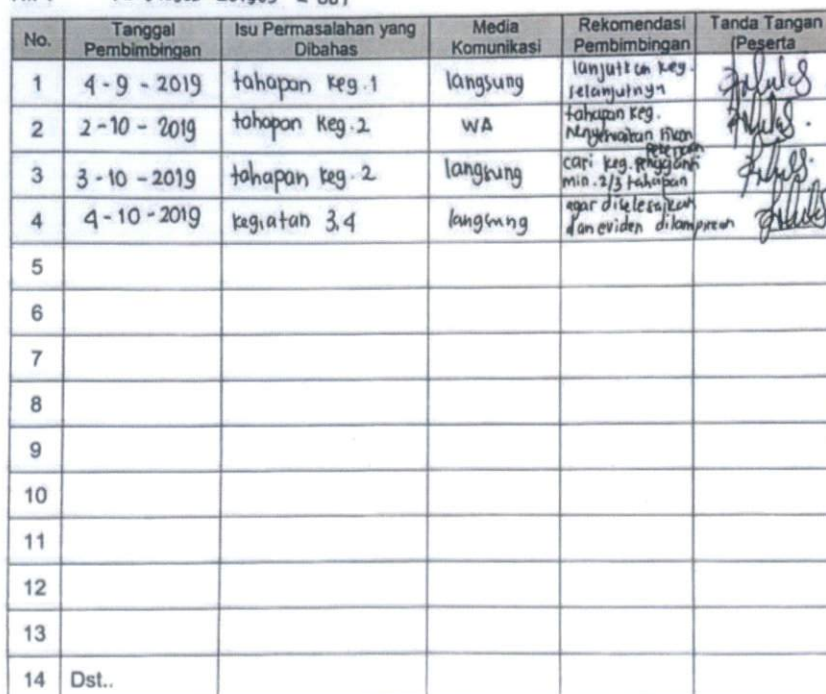 No. Tanggal Pembimbingan Isu Permasalahan yang Dibahas Media Komunikasi Rekomendasi Pembimbingan Tanda Tangan (Peserta
1 4-9-2019 tahapan keg.1 langsung lanjutkan keg. selanjutnya
2 2-10-2019 tahapan keg.2 WA tahapan keg.
3 3-10-2019 tahapan keg.2 langsung cari keg. pengganti min. 2/3 tahapan
4 4-10-2019 kegiatan 3,4 langsung agar diselesaikan dan eviden dilampirkan
5
6
7
8
9
10
11
12
13
14 Dst..